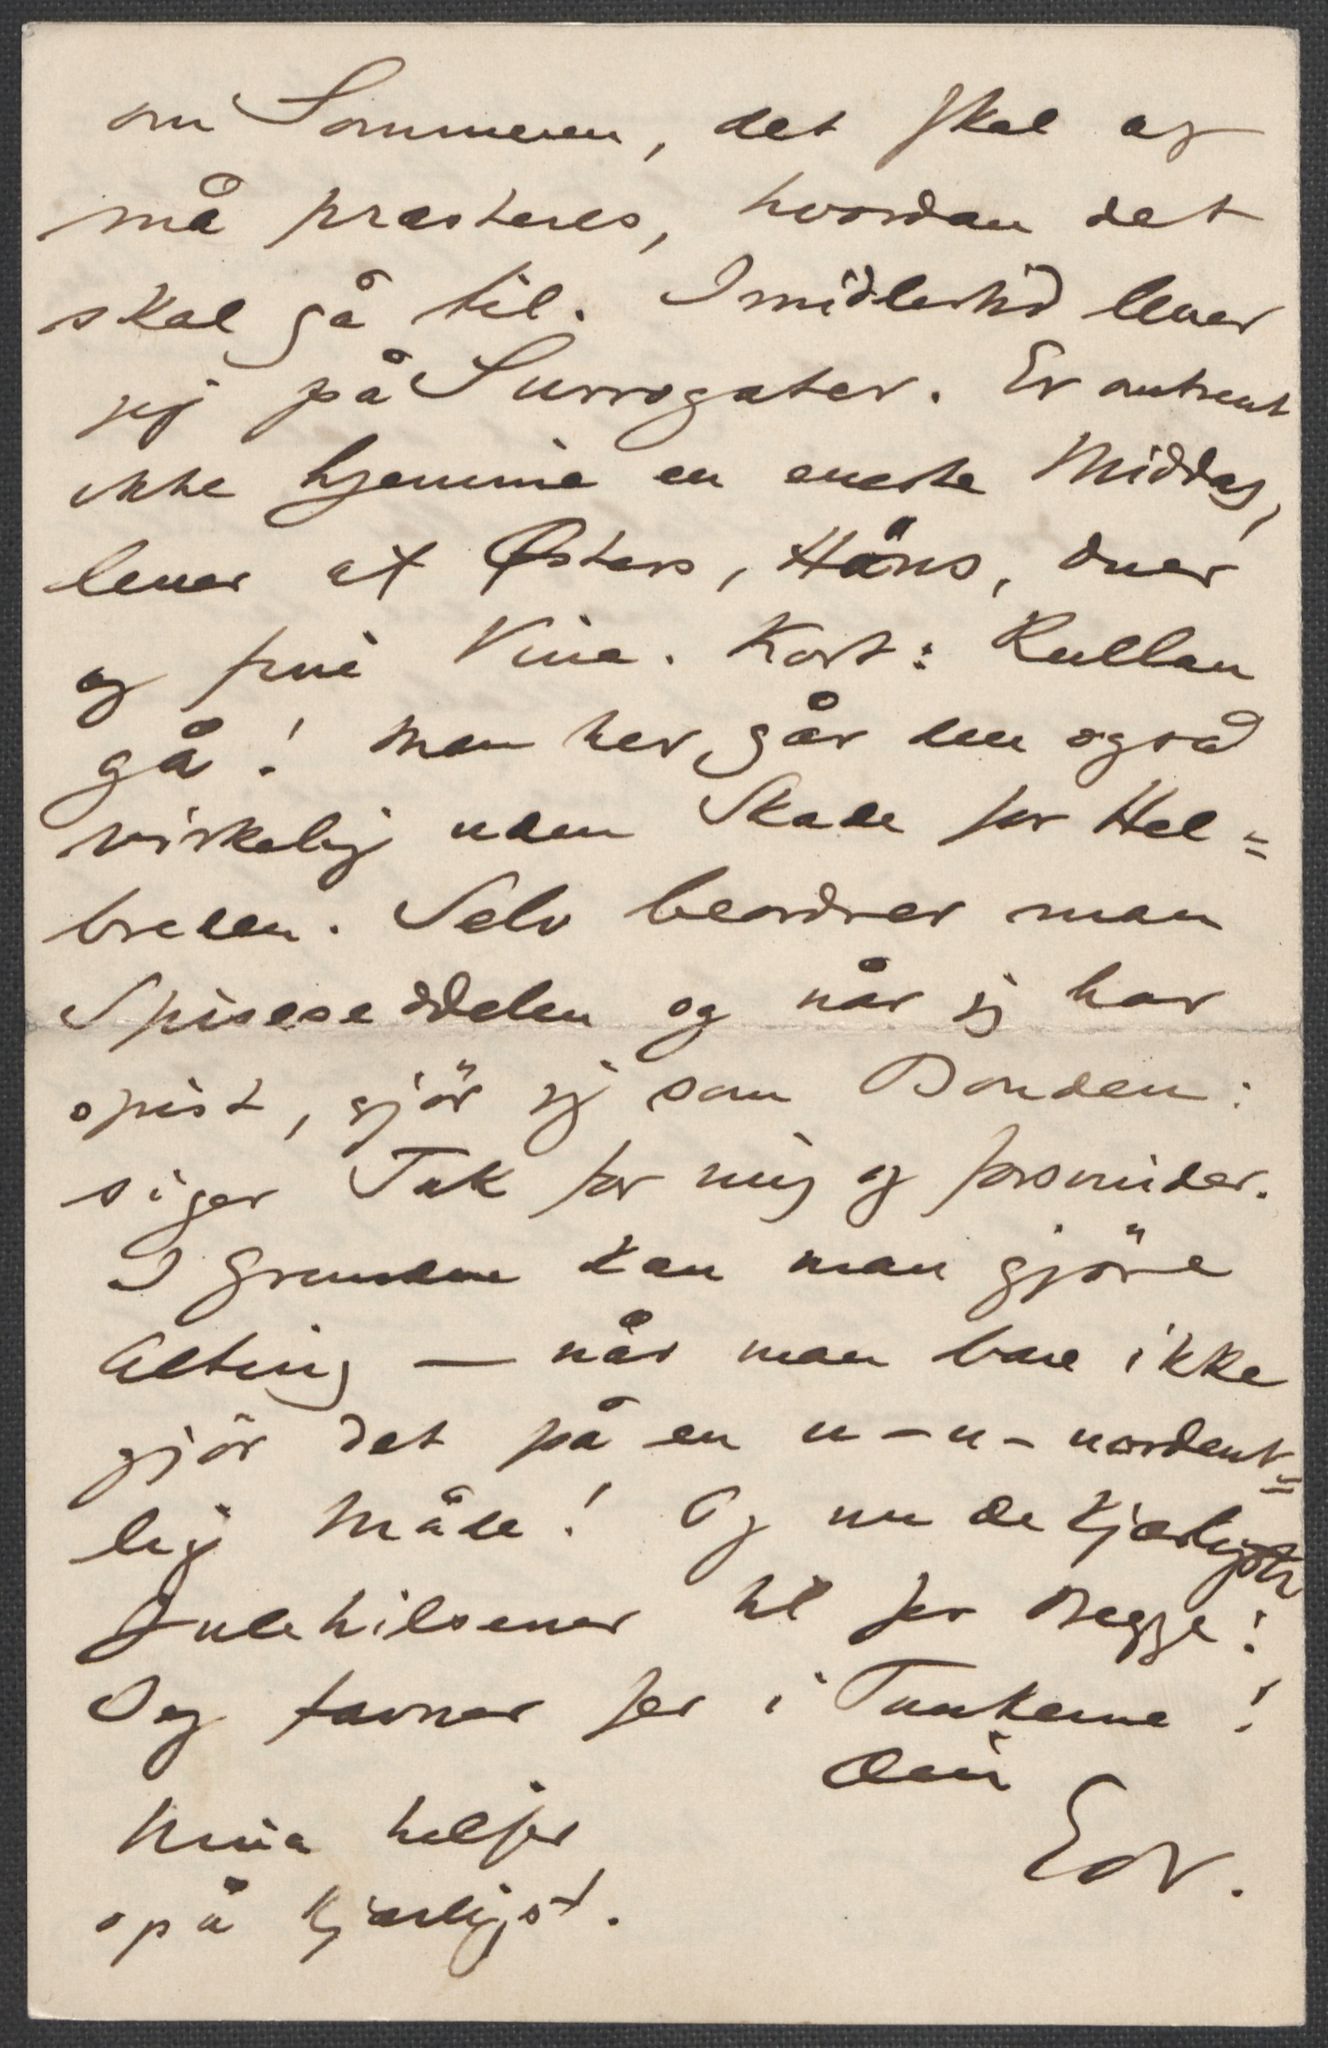 om Sommeren, det skal og
må præsteres, hvordan det
skal gå til. Imidlertid lever
jeg på Surrogater. Er omtrent
ikke hjemme en eneste Middag,
lever af Østers, Höns, Duer
og fine Vine. Kort: Rullan
gå! Men her går den også
virkelig uden Skade for Hel=
breden. Selv beordrer man
Spiseseddelen og når jeg har
spist, gjör jeg som Bonden:
siger Tak for mig og forsvinder.
I Grunden kan man gjöre
Alting — når man bare ikke
gjör det på en u-u-uordent=
lig Måde! Og nu de kjærligste
Julehilsener til Jer Begge!
Jeg favner Jer i Tankerne!
Din
Edv.
Nina hilser
også kjærligst.